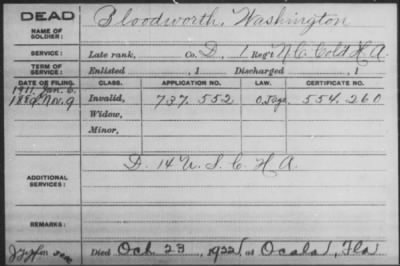 DEAD Bloodworth, Washington
NAME OF
SOLDIER:
SERVICE: Late rank, Co. D, 1 Reg't N.C. Cold H.A.
TERM OF
SERVICE: Enlisted , 1 Discharged , 1
DATE OF FILING. CLASS. APPLICATION NO. LAW. CERTIFICATE NO.
1911, Jan. 6.
1889, Nov. 9 Invalid, 737.552 554.260
Widow,
Minor,
ADDITIONAL
SERVICES: D. 14 U.S.C.H.A.
REMARKS:
Died Oct. 23, 1922, at Ocala, Fla